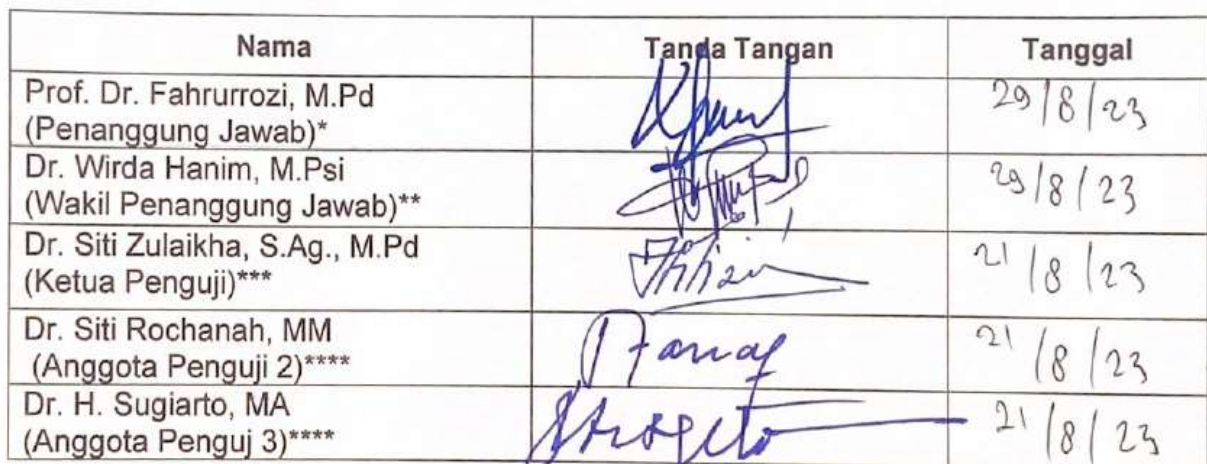 Nama Tanda Tangan Tanggal
Prof. Dr. Fahrurrozi, M.Pd
(Penanggung Jawab)* 29/8/23
Dr. Wirda Hanim, M.Psi
(Wakil Penanggung Jawab)** 29/8/23
Dr. Siti Zulaikha, S.Ag., M.Pd
(Ketua Penguji)*** 21/8/23
Dr. Siti Rochanah, MM
(Anggota Penguji 2)**** 21/8/23
Dr. H. Sugiarto, MA
(Anggota Penguj 3)**** 21/8/23